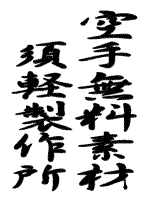 空手無料素材
須軽製作所